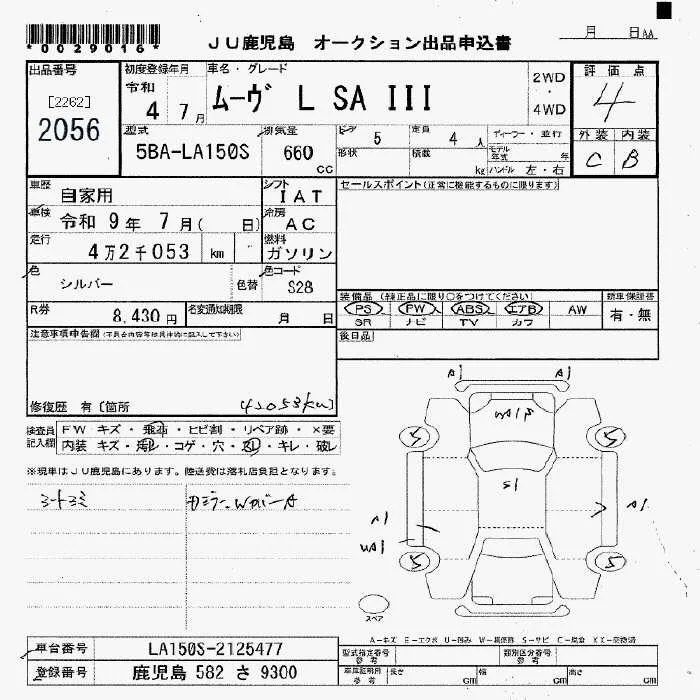 *0029016*
JU鹿児島 オークション出品申込書
月 日AA
出品番号
[2262]
2056
初度登録年月
令和
4 7月
車名・グレード
ムーヴ L SA III
2WD
・
4WD
評価点
4
外装 内装
C B
型式
5BA-LA150S
排気量
660
CC
ドア
5
定員
4 人
ディーラー・並行
形状
積載
kg
モデル年式 年
ハンドル 左・右
車歴
自家用
シフト
IAT
車検
令和 9年 7月( 日)
冷房
AC
走行
4万2千053 km
燃料
ガソリン
色
シルバー
色替
色コード
S28
R券
8,430 円
名変通知期限
月 日
セールスポイント(正常に機能するものに限ります)
装備品(純正品に限り○をつけてください)
PS PW ABS エアB AW
SR ナビ TV カワ
新車保証書
有・無
後日品
注意事項申告欄
修復歴 有〔箇所
42053km
検査員記入欄
FW キズ・飛石・ヒビ割・リペア跡・×要
内装 キズ・汚れ・コゲ・穴・スレ・キレ・破レ
※現車はJU鹿児島にあります。陸送費は落札店負担となります。
シートヨミ
A1 A1
S1
A1
A1
S S
S S
スペア
A-キズ E-エクボ U-凹み W-補修跡 S-サビ C-腐食 XX-交換済
車台番号
LA150S-2125477
登録番号
鹿児島 582 さ 9300
型式指定番号
参考
類別区分番号
参考
車庫証明用
参考
長さ cm 幅 cm 高さ cm